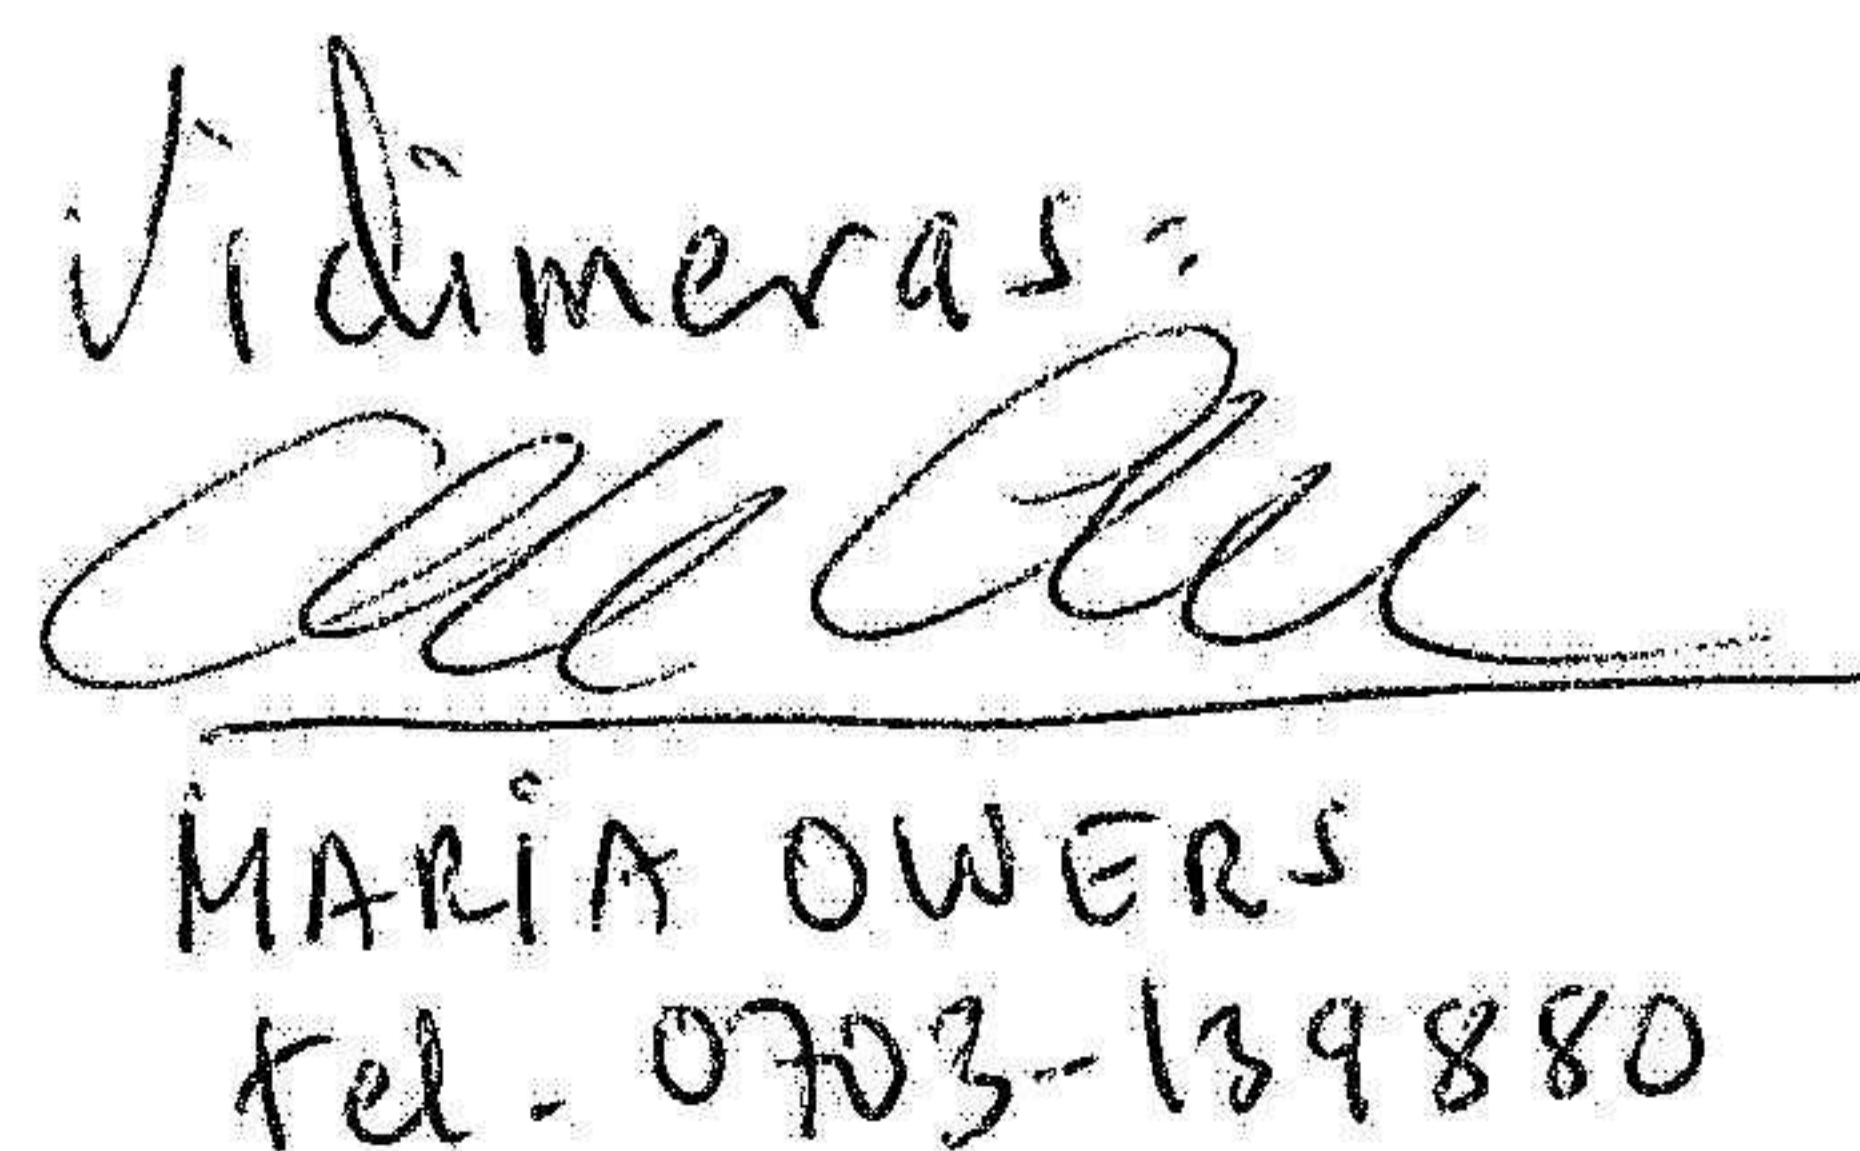 Vidimeras:
MARIA OWERS
tel. 0703-139880